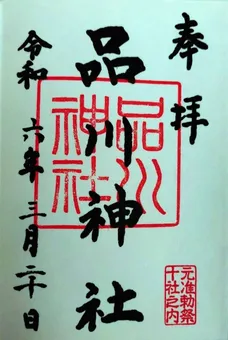 奉拝
品川神社
品川神社
元准勅祭
十社之内
令和六年三月二十日